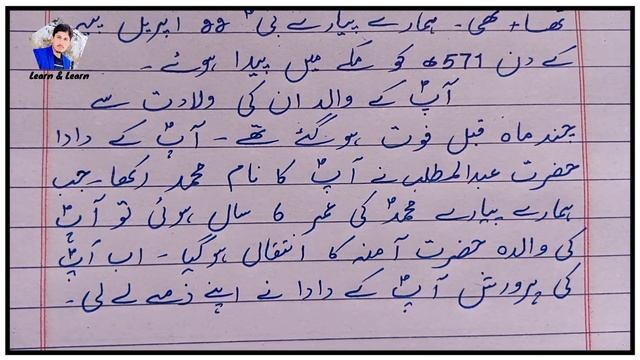 تھا۔ تھی۔ ہمارے پیارے نبیؐ 22 اپریل پیر
Learn & Learn
کے دن 571ء کو مکے میں پیدا ہوئے۔
آپؐ کے والد ان کی ولادت سے
چند ماہ قبل فوت ہو گئے تھے۔ آپؐ کے دادا
حضرت عبدالمطلب نے آپؐ کا نام محمد رکھا۔ جب
ہمارے پیارے محمدؐ کی عمر 6 سال ہوئی تو آپؐ
کی والدہ حضرت آمنہ کا انتقال ہو گیا۔ اب آپؐ
کی پرورش آپؐ کے دادا نے اپنے ذمے لے لی۔